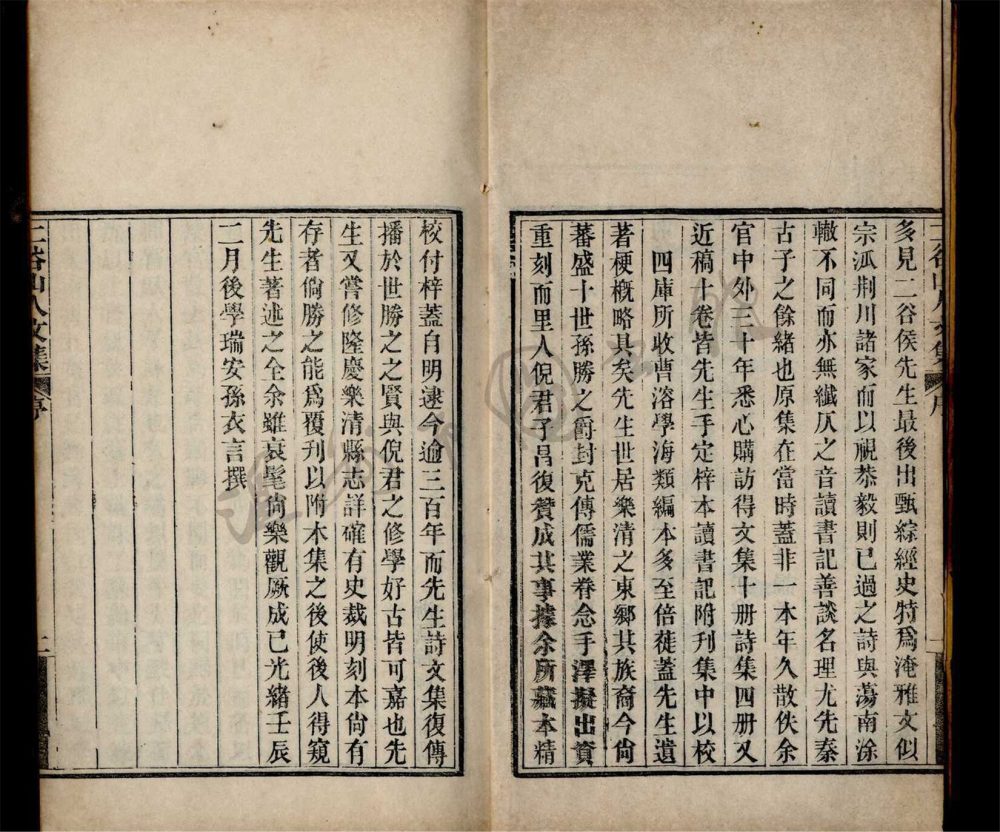 多見二谷侯先生最後出甄綜經史特爲淹雅文似
宗派荆川諸家而以視恭毅則已過之詩與蕩南涂
轍不同而亦無纖仄之音讀書記善談名理尤先秦
古子之餘緒也原集在當時蓋非一本年久散佚余
官中外三十年悉心購訪得文集十册詩集四册又
近稿十卷皆先生手定梓本讀書記附刊集中以校
四庫所收曹溶學海類編本多至倍蓰蓋先生遺
著梗概略具矣先生世居樂清之東鄉其族裔今尙
蕃盛十世孫勝之爵封克傳儒業眷念手澤擬出貲
重刻而里人倪君子昌復贊成其事據余所藏本精
二谷山人文集 序
校付梓蓋自明逮今逾三百年而先生詩文集復傳
播於世勝之之賢與倪君之修學好古皆可嘉也先
生又嘗修隆慶樂清縣志詳確有史裁明刻本尙有
存者倘勝之能爲覆刊以附木集之後使後人得窺
先生著述之全余雖衰髦尙樂觀厥成已光緒壬辰
二月後學瑞安孫衣言撰
二谷山人文集 序 二